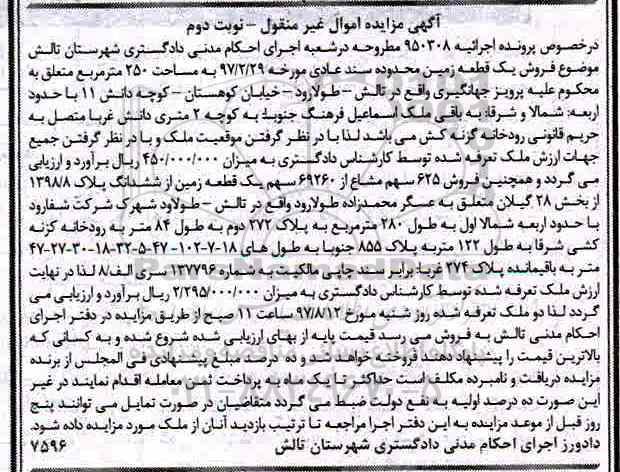 آگهی مزایده اموال غیر منقول – نوبت دوم
درخصوص پرونده اجرائیه ۹۵۰۳۰۸ مطروحه درشعبه اجرای احکام مدنی دادگستری شهرستان تالش
موضوع فروش یک قطعه زمین محدوده سند عادی مورخه ۹۷/۲/۲۹ به مساحت ۲۵۰ مترمربع متعلق به
محکوم علیه پرویز جهانگیری واقع در تالش – طولارود – خیابان کوهستان – کوچه دانش ۱۱ با حدود
اربعه: شمالا و شرقا: به باقی ملک اسماعیل فرهنگ جنوبا: به کوچه ۲ متری دانش غربا متصل به
حریم قانونی رودخانه گزنه کش می باشد لذا با در نظر گرفتن موقعیت ملک و با در نظر گرفتن جمیع
جهات ارزش ملک تعرفه شده توسط کارشناس دادگستری به میزان ۴۵۰/۰۰۰/۰۰۰ ریال برآورد و ارزیابی
می گردد و همچنین فروش ۶۲۵ سهم مشاع از ۶۹۲۶۰ سهم یک قطعه زمین از ششدانگ پلاک ۱۳۹۸/۸
از بخش ۲۸ گیلان متعلق به عسگر محمدزاده طولارود واقع در تالش – طولاود شهرک شرکت شفارود
با حدود اربعه شمالا اول به طول ۲۸۰ مترمربع به پلاک ۲۷۲ دوم به طول ۸۴ متر به رودخانه کزنه
کشی شرقا به طول ۱۲۲ متربه پلاک ۸۵۵ جنوبا به طول های ۱۸-۷-۱۰۲- ۴۷-۵-۳۲-۱۸-۳۰-۲۷-۴۷
متر به باقیمانده پلاک ۲۷۴ غربا: برابر سند چاپی مالکیت به شماره ۱۳۷۷۹۶ سری الف/۸ لذا در نهایت
ارزش ملک تعرفه شده توسط کارشناس دادگستری به میزان ۲/۲۹۵/۰۰۰/۰۰۰ ریال برآورد و ارزیابی می
گردد لذا دو ملک تعرفه شده روز شنبه مورخ ۹۷/۸/۱۲ ساعت ۱۱ صبح از طریق مزایده در دفتر اجرای
احکام مدنی تالش به فروش می رسد قیمت پایه از بهای ارزیابی شده شروع شده و به کسانی که
بالاترین قیمت را پیشنهاد دهند فروخته خواهد شد و ده درصد مبلغ پیشنهادی فی المجلس از برنده
مزایده دریافت و نامبرده مکلف است حداکثر تا یک ماه به پرداخت ثمن معامله اقدام نمایند در غیر
این صورت ده درصد اولیه به نفع دولت ضبط می گردد متقاضیان در صورت تمایل می توانند پنج
روز قبل از موعد مزایده به این دفتر اجرا مراجعه تا ترتیب بازدید آنان از ملک مورد مزایده داده شود.
دادورز اجرای احکام مدنی دادگستری شهرستان تالش ۷۵۹۶